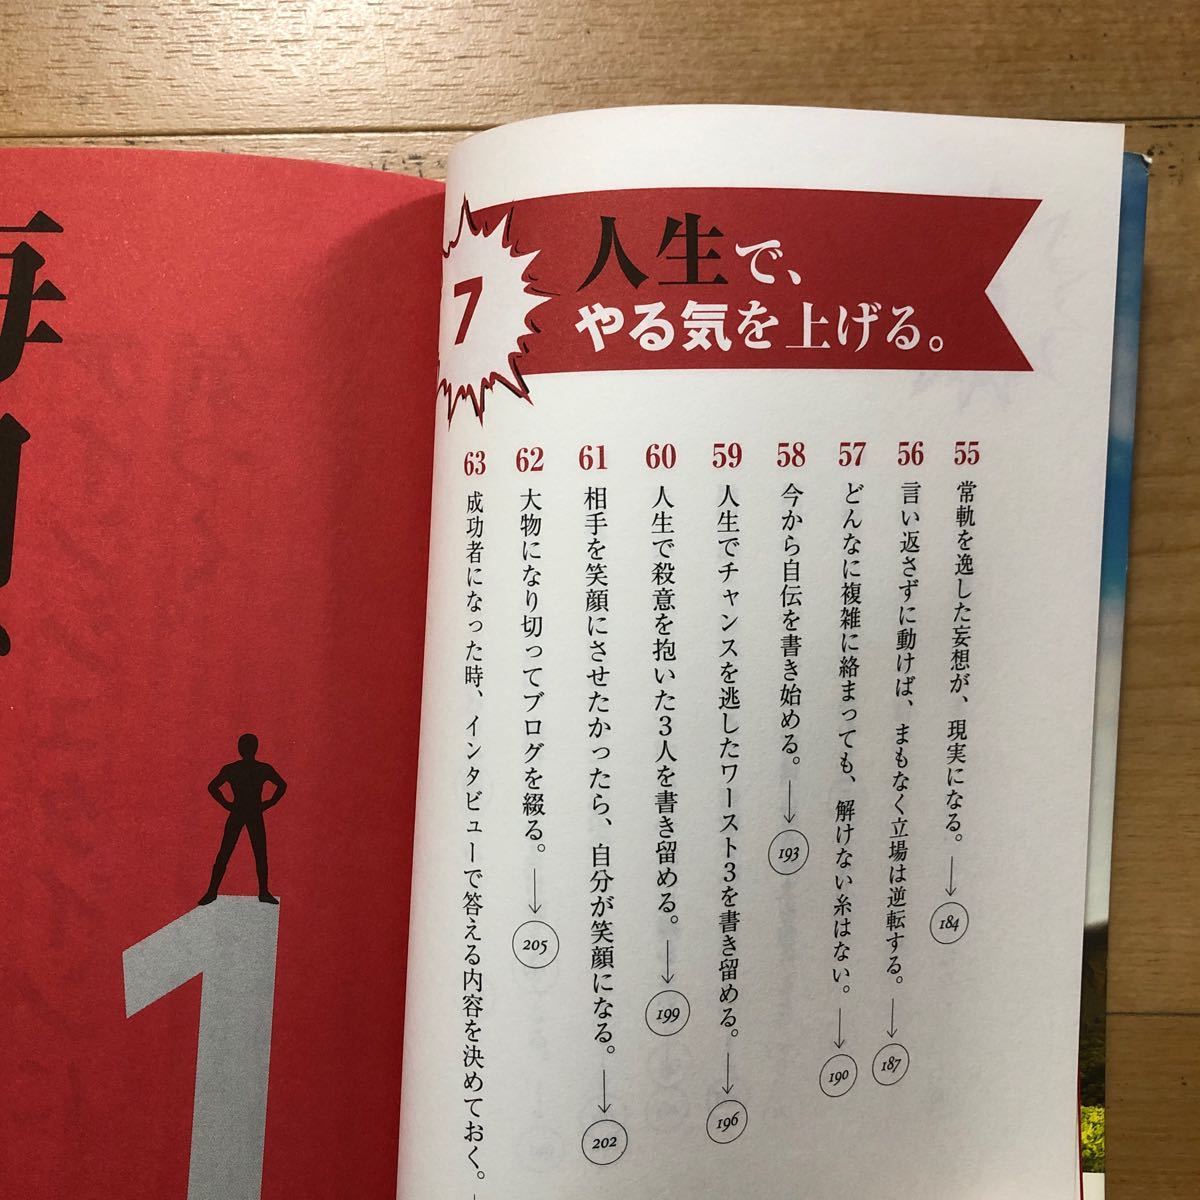 7
人生で、
やる気を上げる。
55 常軌を逸した妄想が、現実になる。→184
56 言い返さずに動けば、まもなく立場は逆転する。→187
57 どんなに複雑に絡まっても、解けない糸はない。→190
58 今から自伝を書き始める。→193
59 人生でチャンスを逃したワースト3を書き留める。→196
60 人生で殺意を抱いた3人を書き留める。→199
61 相手を笑顔にさせたかったら、自分が笑顔になる。→202
62 大物になり切ってブログを綴る。→205
63 成功者になった時、インタビューで答える内容を決めておく。
1